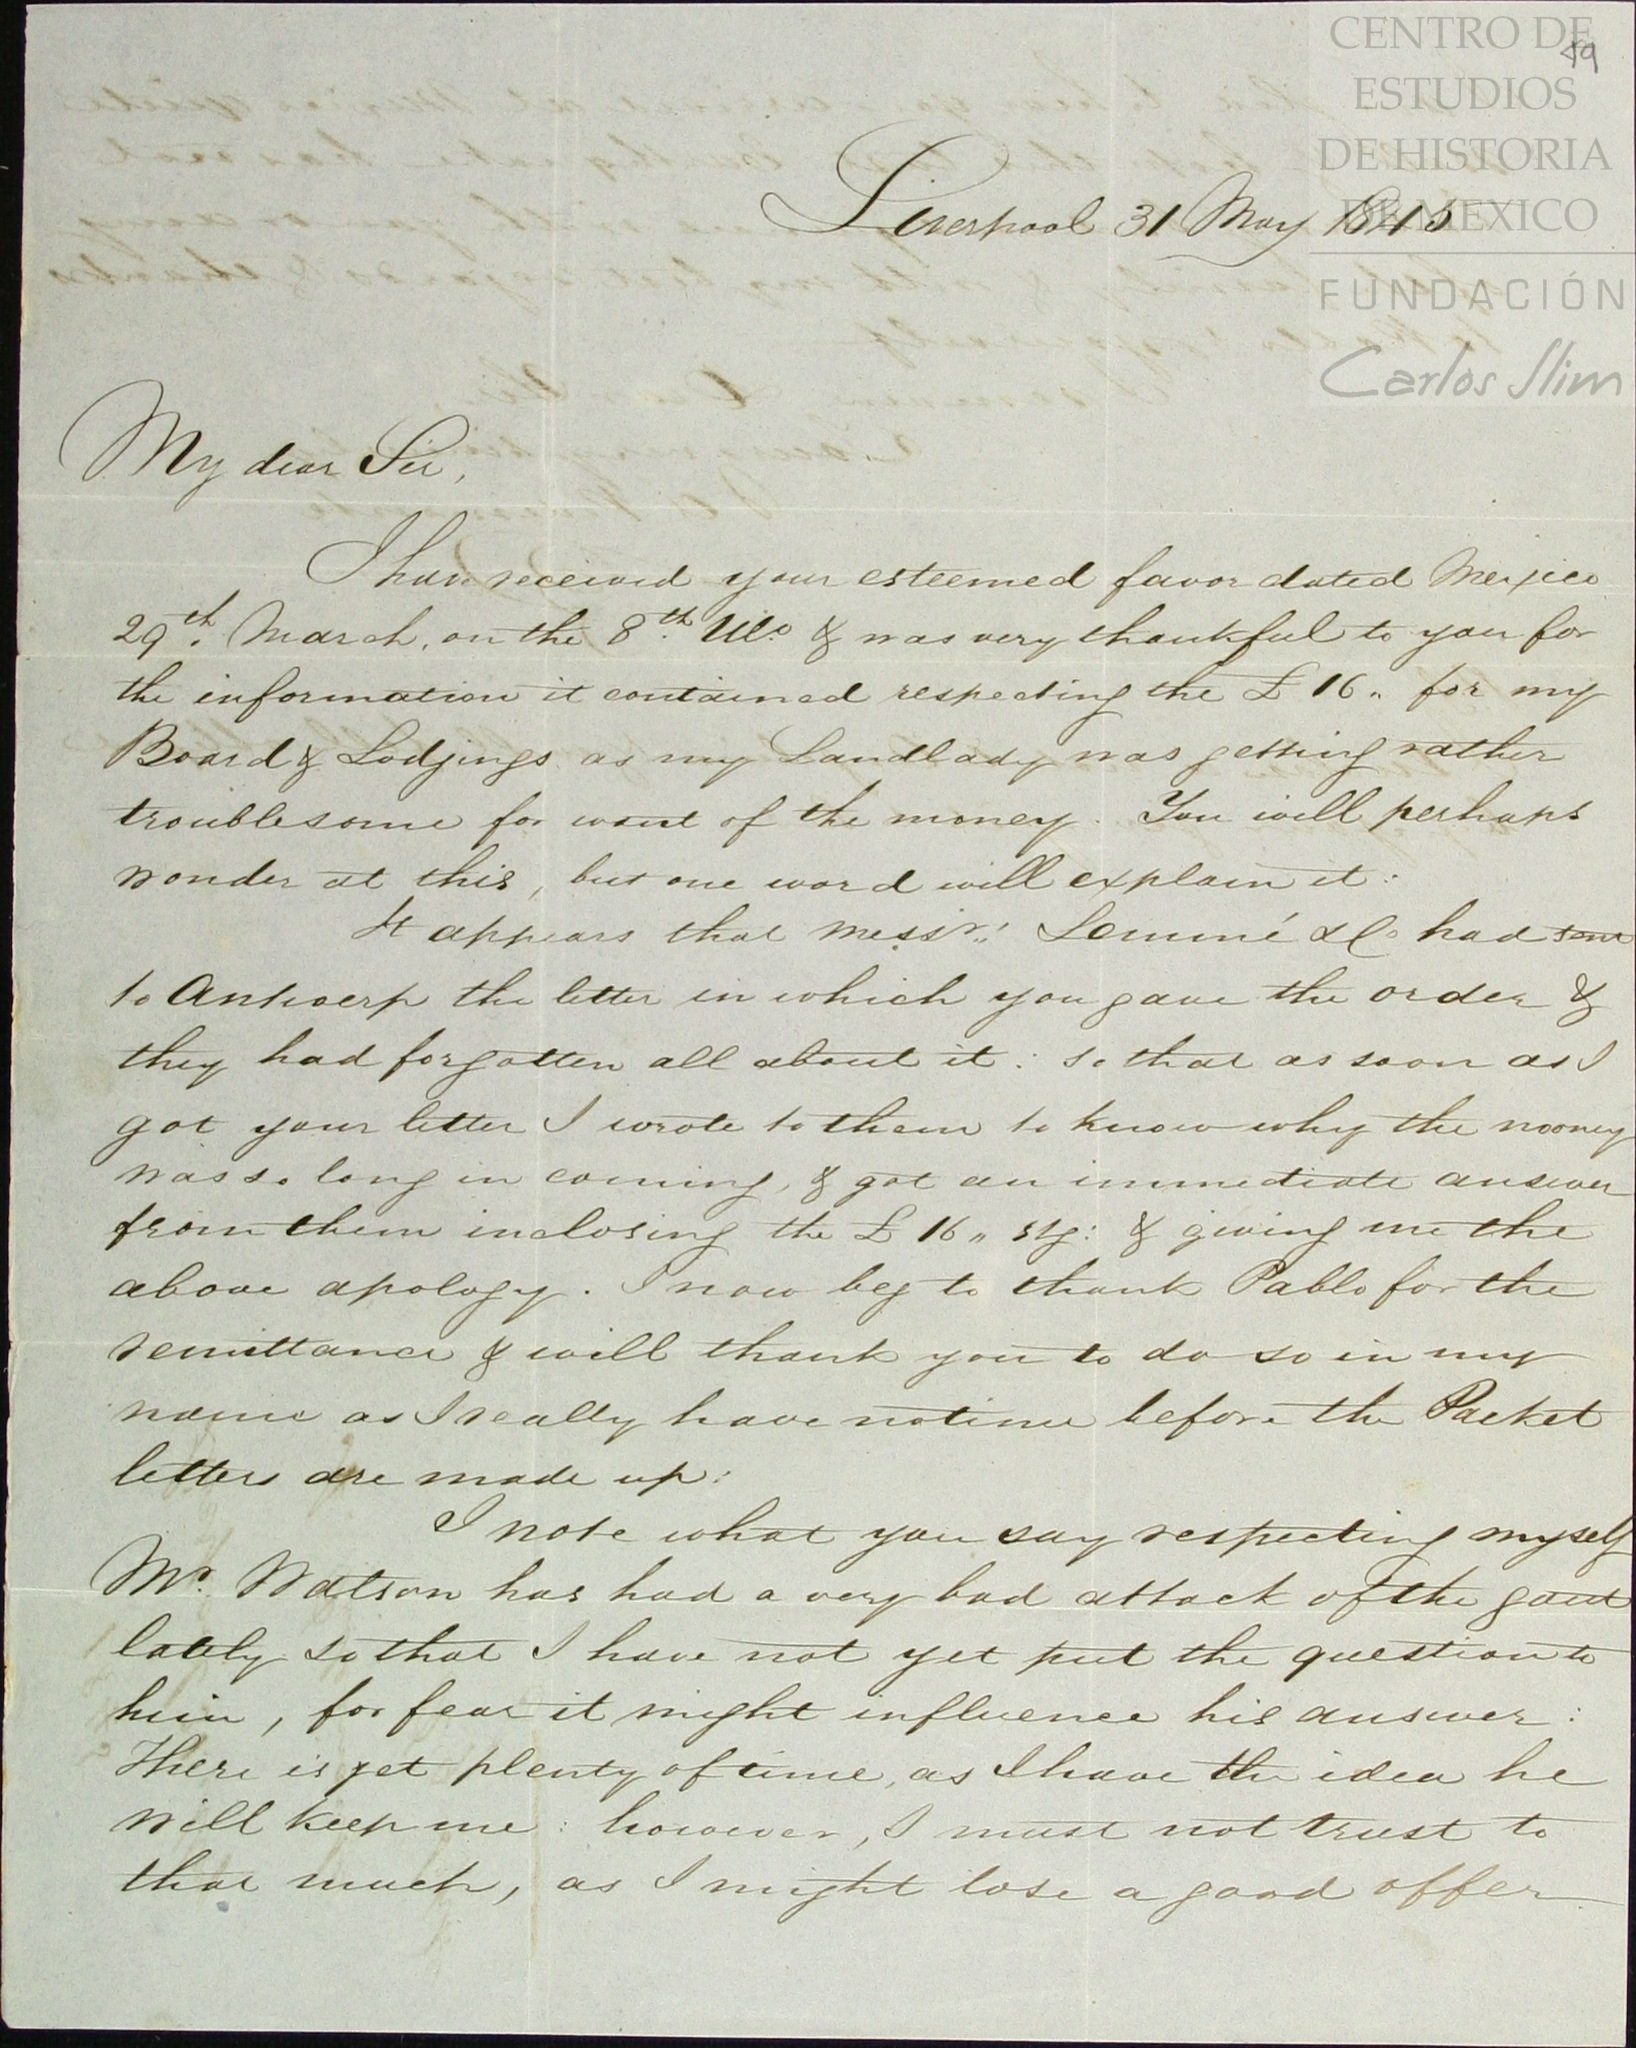 CENTRO DE
ESTUDIOS
DE HISTORIA
DE MEXICO
FUNDACIÓN
Carlos Slim
Liverpool 31 May 1845
My dear Sir,
I have received your esteemed favor dated Mexico
29th. March, on the 8th. Ulo. & was very thankful to you for
the information it contained respecting the £16 " for my
Board & Lodgings as my Landlady was getting rather
troublesome for want of the money. You will perhaps
wonder at this, but one word will explain it:
It appears that Messrs. Lemmé & Co had sent
to Antwerp the letter in which you gave the order &
they had forgotten all about it: so that as soon as I
got your letter I wrote to them to know why the money
was so long in coming, & got an immediate answer
from them inclosing the £16 " stg: & giving me the
above apology. I now beg to thank Pablo for the
remittance & will thank you to do so in my
name as I really have no time before the Packet
letters are made up:
I note what you say respecting myself
Mr. Watson has had a very bad attack of the gout
lately so that I have not yet put the question to
him, for fear it might influence his answer:
There is yet plenty of time, as I have the idea he
will keep me: however, I must not trust to
that much, as I might lose a good offer